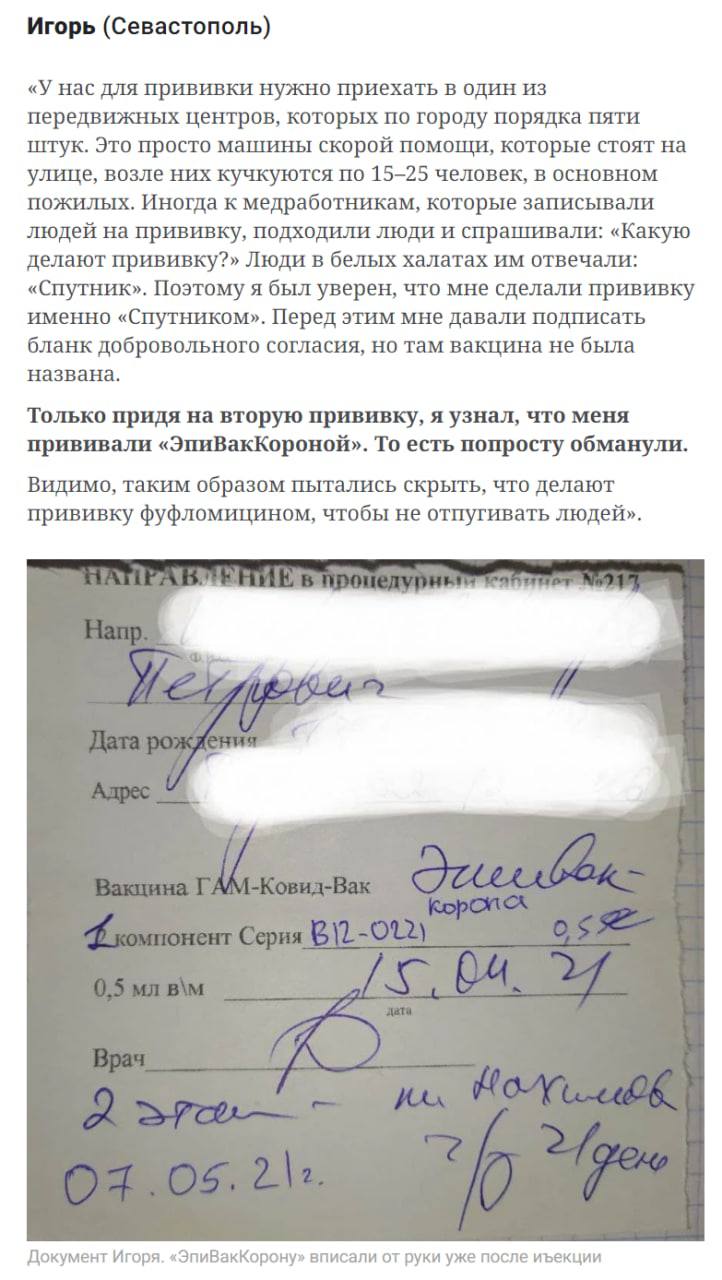 Игорь (Севастополь)
«У нас для прививки нужно приехать в один из
передвижных центров, которых по городу порядка пяти
штук. Это просто машины скорой помощи, которые стоят на
улице, возле них кучкуются по 15–25 человек, в основном
пожилых. Иногда к медработникам, которые записывали
людей на прививку, подходили люди и спрашивали: «Какую
делают прививку?» Люди в белых халатах им отвечали:
«Спутник». Поэтому я был уверен, что мне сделали прививку
именно «Спутником». Перед этим мне давали подписать
бланк добровольного согласия, но там вакцина не была
названа.
Только придя на вторую прививку, я узнал, что меня
прививали «ЭпиВакКороной». То есть попросту обманули.
Видимо, таким образом пытались скрыть, что делают
прививку фуфломицином, чтобы не отпугивать людей».
НАПРАВЛЕНИЕ в процедурный кабинет №217
Напр.
Петрович
Дата рождения
Адрес
Вакцина ГАМ-Ковид-Вак Эпивак-
корона
1 компонент Серия В12-0221 0,5
0,5 мл в\м 15.04.21
дата
Врач
2 этап - пл Нахимова
07.05.21г. ч/б 21 день
Документ Игоря. «ЭпиВакКорону» вписали от руки уже после иъекции